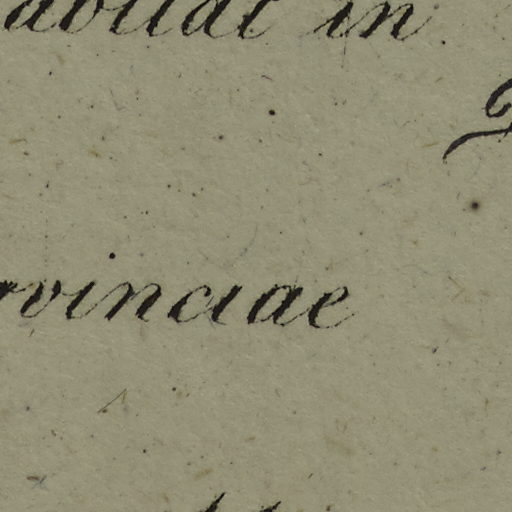 abitat in
ovinciae